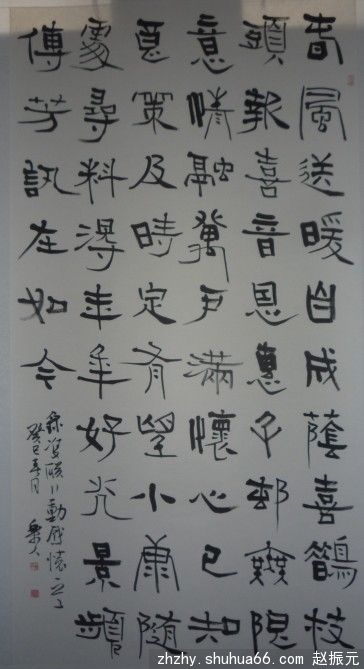 春風送暖自成蔭喜鵲枝
頭報喜音恩惠千邨無限
意情融萬戶滿懷心已知
百策及時定有望小康隨
處尋料得年年好光景頻
傳芳訊在如今
癸巳春月
zhzhy.shuhua66.com 赵振元